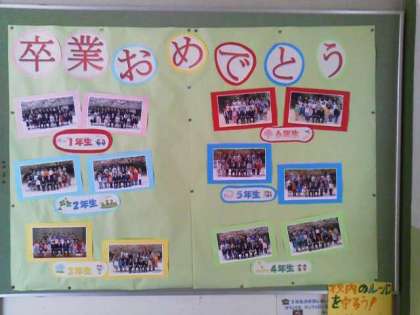 卒業おめでとう
1年生
6年生
2年生
5年生
3年生
4年生
校内のルール
を守ろう!